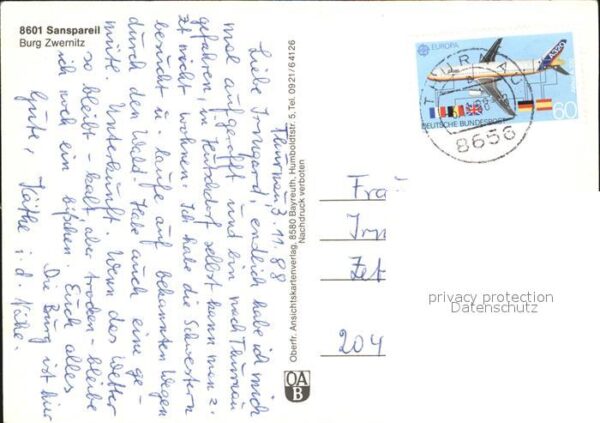 8601 Sanspareil
Burg Zwernitz
Thurnau, 3.11.88
Liebe Irmgard, endlich habe ich mich
mal aufgerafft und bin nach Thurnau
gefahren, in Hutschdorf selbst kann man z.
Zt nicht wohnen. Ich habe die Schwestern
besucht u. laufe auf bekannten Wegen
durch den Wald. Habe auch eine ge-
mütl. Unterkunft. Wenn das Wetter
so bleibt - kalt, aber trocken - bleibe
ich noch ein bißchen. Euch alles
Gute, Die Burg ist hier
Käthe i. d. Nähe.
Oberfr. Ansichtskartenverlag, 8580 Bayreuth, Humboldtstr. 5, Tel. 0921/64126
Nachdruck verboten
OA
B
EUROPA
A320
60
DEUTSCHE BUNDESPOST
8656
Frau
204
privacy protection
Datenschutz